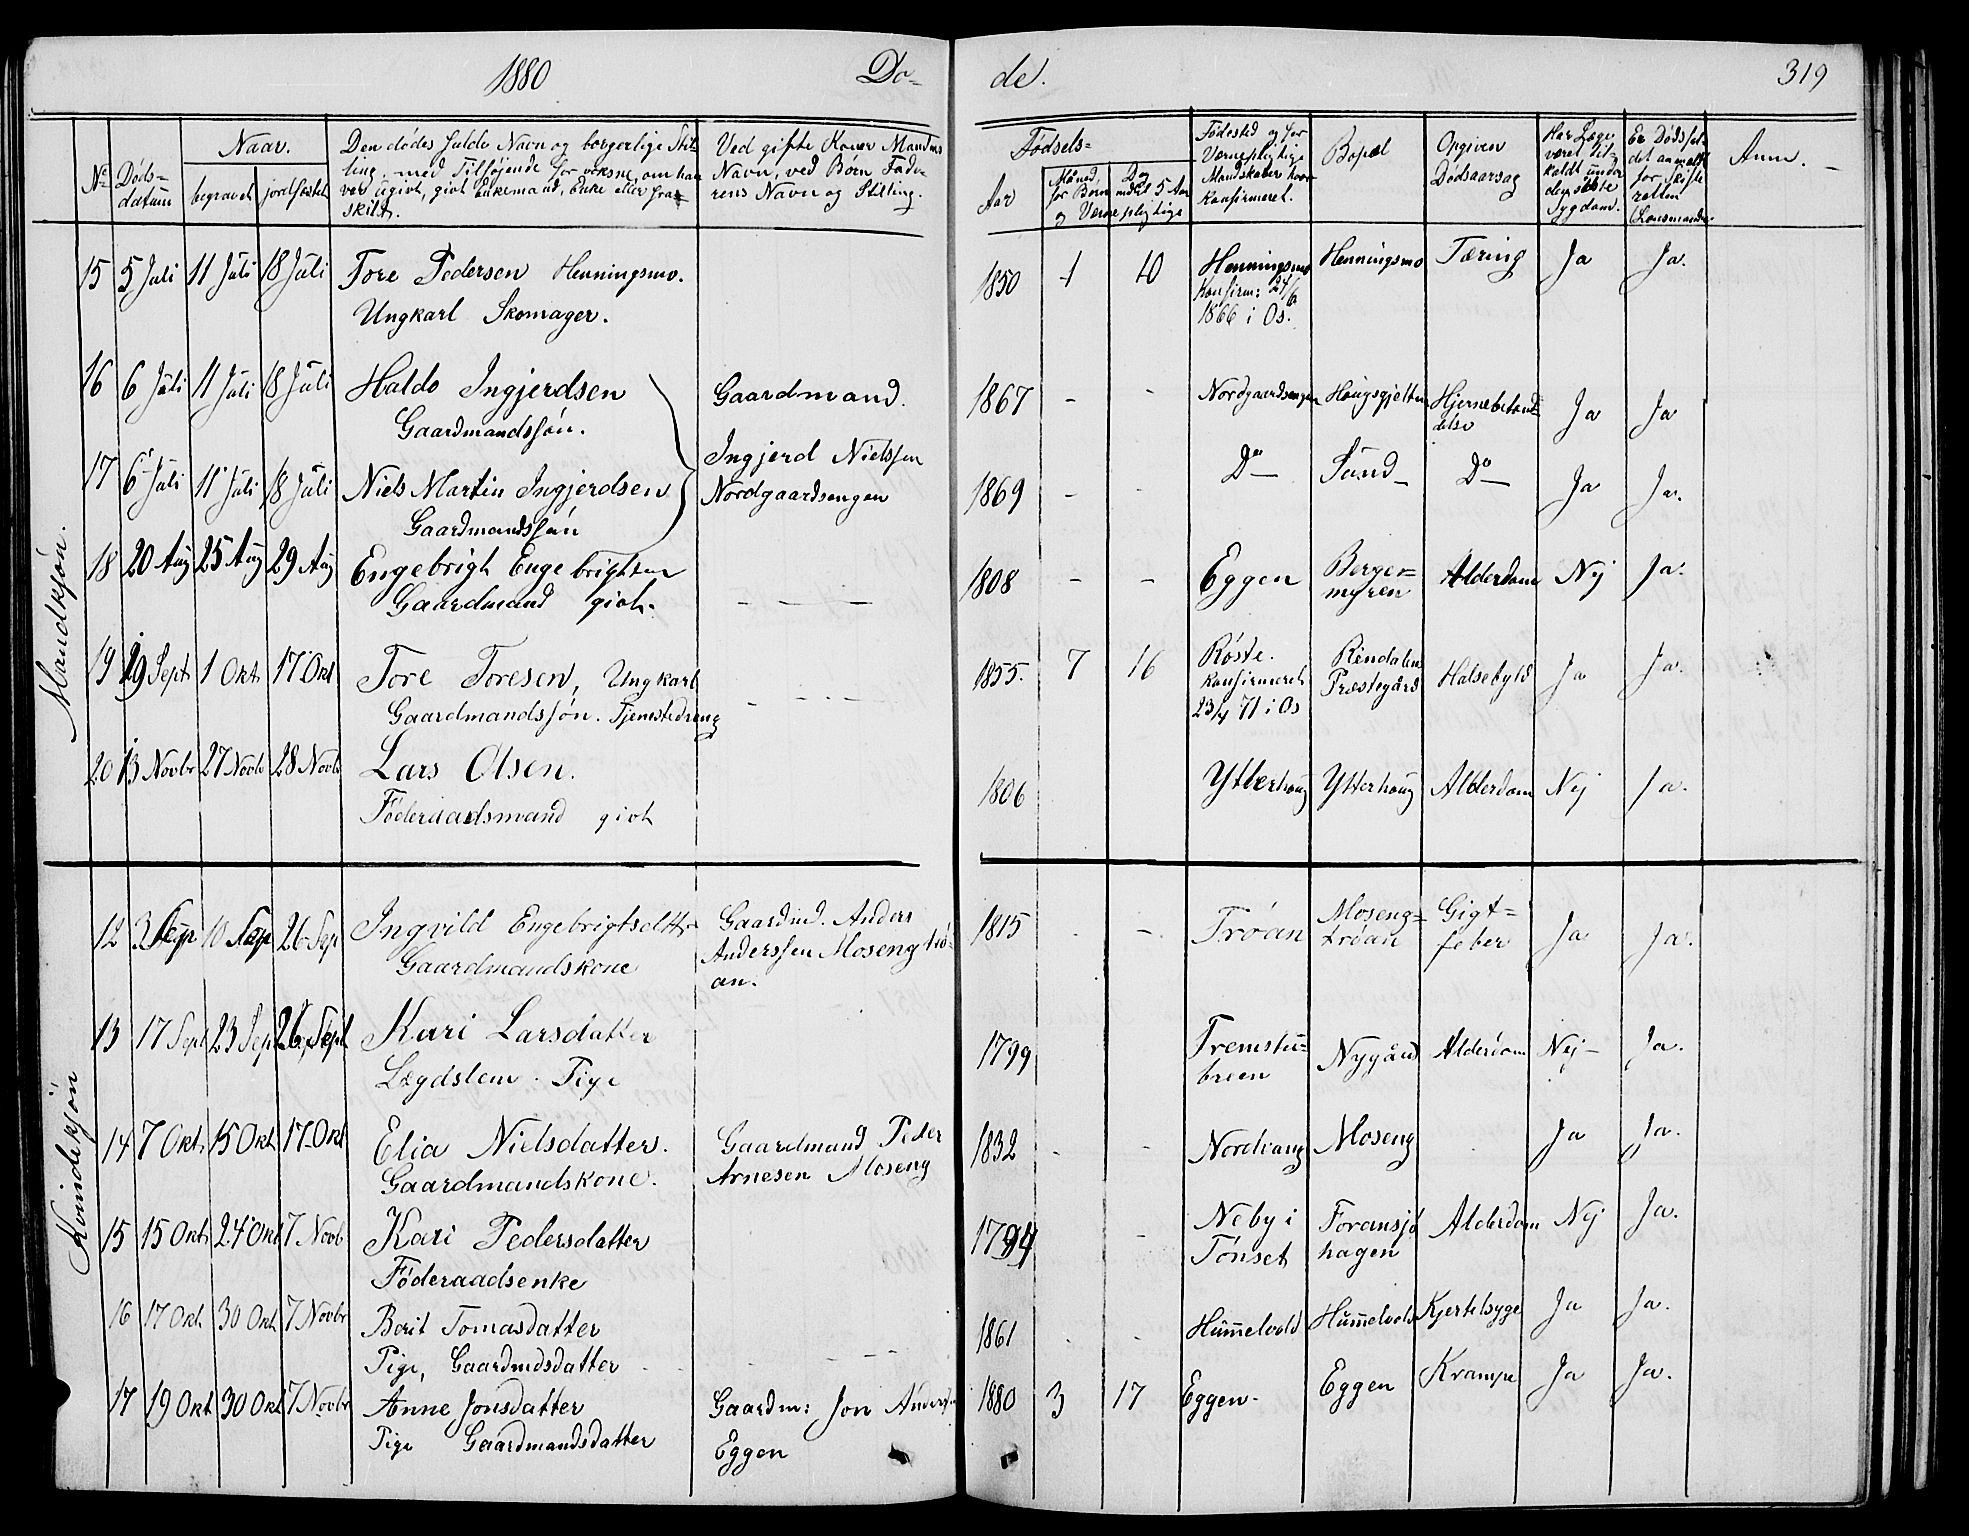 1880
Dø=
de.
319
Naar.
No
Døds=
datum
begravet
jordfæstet
Den dødes fulde Navn og borgerlige Stil=
ling, med Tilføjende for voksne, om han
var ugivt, givt Enkemand, Enke eller fra
skilt.
Ved gifte Koner Mandens
Navn, ved Børn Fade=
rens Navn og Stilling.
Fødsels=
Aar
Måned, Dag
for Børn indtil 5 Aar
og Vernepligtige
Fødested og for
Værnepligtige
Mandskaber hvor
konfirmeret.
Bopæl
Opgiven
Dødsaarsag
Har Læge
været til=
kaldt under
den sidste
Sygdom.
Er Dødsfal=
det anmeldt
for skifte
retten
(Lensmanden
Anm.
Mandkjøn.
15 5 Juli 11 Juli 18 Juli Tore Pedersen Henningsmo.
Ungkarl Skomager.
1850 1 10 Henningsmo Henningsmo Tæring Ja Ja.
Konfirm: 24/6
1866 i Os.
16 6 Juli 11 Juli 18 Juli Haldo Ingjerdsen Gaardmand.
Gaardmandssøn.
1867 - - Nordgaardsengen Haugsgjelten Hjernebetænd
delse Ja Ja
17 6 Juli 11 Juli 18 Juli Niels Martin Ingjerdsen Ingjerd Nielssen
Gaardmandssøn Nordgaardsengen
1869 - - Do Sund Do Ja Ja.
18 20 Aug 25 Aug 29 Aug Engebrigt Engebrigtsen
Gaardmand givt. - - - -
1808 - - Eggen Berger=
myren Alderdom Nej Ja.
19 19 Sept 1 Okt 17 Okt Tore Toresen, Ungkarl
Gaardmandssøn. Tjenestedreng - - -
1855. 7 16 Røste. Rendalen
konfirmeret Præstegård Halsebyld Ja Ja.
23/4 71 i Os
20 13 Novbr 27 Novb 28 Novb Lars Olsen.
Føderaadsmand givt
1806 Ytterhaug Ytterhaug Alderdom Nej Ja.
Kvindekjøn
12 3 Sep 10 Sep 26 Sep Ingvild Engebrigtsdtr Gaardmd. Anders
Gaardmandskone Anderssen Mosengtrø=
an.
1815 - - Trøan Moseng=
trøan Gigt=
feber Ja Ja.
13 17 Sept 23 Sep 26 Sept Kari Larsdatter
Lægdslem. Pige
1799 Fremstu=
breen Nygård Alderdom Nej- Ja.
14 7 Okt 15 Okt 17 Okt Elia Nielsdatter. Gaardmand Peder
Gaardmandskone. Arnesen Moseng
1832 - - Nordvang Moseng Ja Ja.
15 15 Okt 24 Okt 7 Novb Kari Pedersdatter
Føderaadsenke
1794 - Neby i
Tønset Foransjø
hagen Alderdom Nej Ja.
16 17 Okt 30 Okt 7 Novbr Berit Tomasdatter
Pige, Gaardmdsdatter - - - -
1861 - - Hummelvold Hummelvold Kjertelsyge Ja Ja.
17 19 Okt 30 Okt 7 Novbr Anne Jonsdatter Gaardm: Jon Anders
Pige Gaardmandsdatter Eggen
1880 3 17 Eggen. Eggen Krampe Ja Ja.